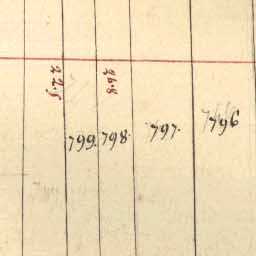 22.5
26.8
799.
798.
797.
796